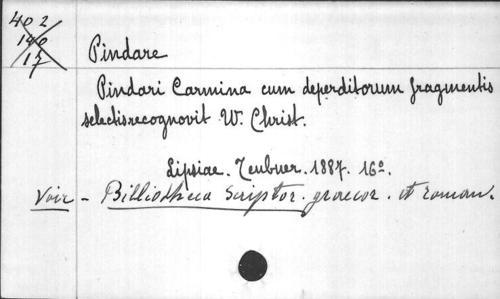 402
140
17
Pindare
Pindari Carmina cum deperditorum fragmentis
selectis recognovit W. Christ.
Lipsiae. Teubner. 1887. 16º.
Voir - Billiotheca Scriptor. graecor. et roman.